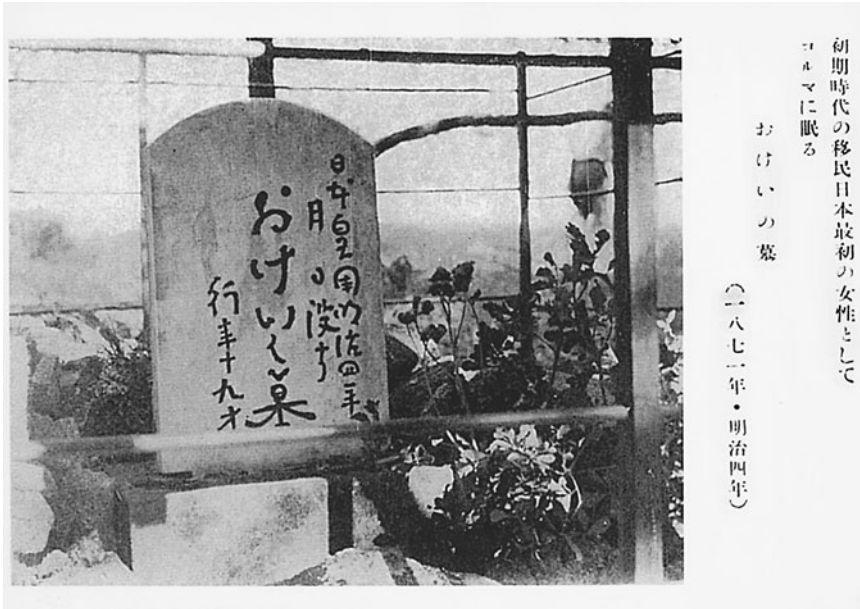 初期時代の移民日本最初の女性として
コルマに眠る
おけいの墓
(一八七一年・明治四年)
日本皇国明治四年
月日没す
おけいの墓
行年十九才